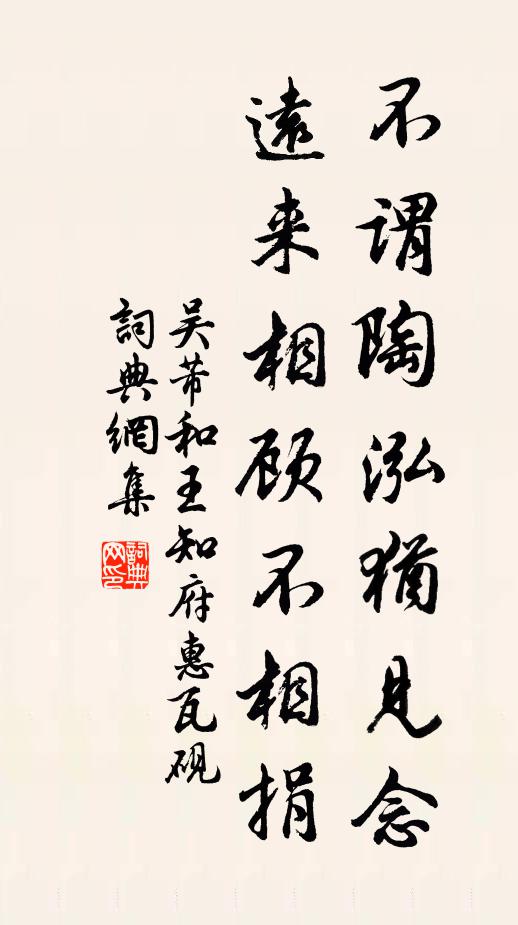 不谓陶泓犹见念
遠来相顾不相捐
吴芾和王知府惠瓦砚
詞典網集
詞典网印